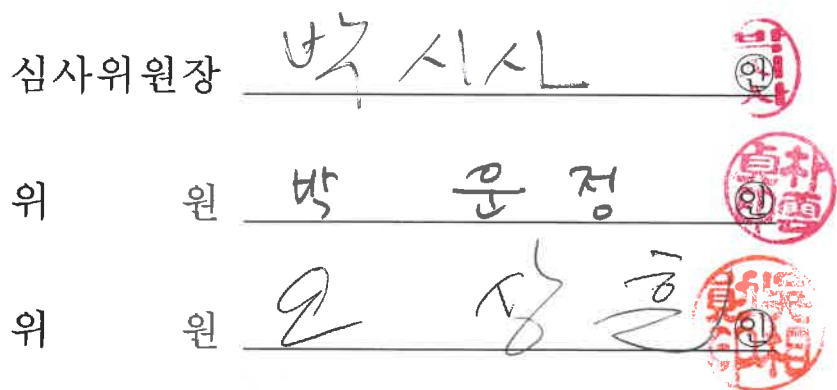 심사위원장 박시사 ㊞
위 원 박 운 정 ㊞
위 원 오 상 훈 ㊞